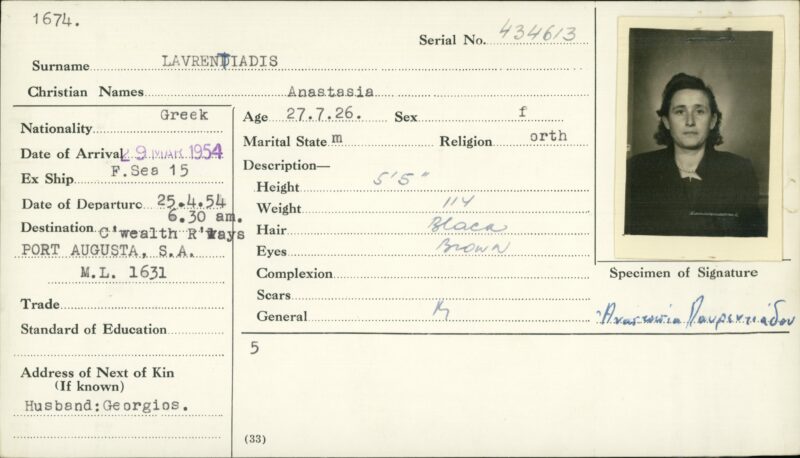 1674.
Serial No. 434613
Surname LAVRENTIADIS
Christian Names Anastasia
Nationality Greek
Date of Arrival 29 MAR 1954
Ex Ship F.Sea 15
Date of Departure 25.4.54
6.30 am.
Destination C'wealth R'ways
PORT AUGUSTA, S.A.
M.L. 1631
Trade
Standard of Education
Address of Next of Kin
(If known)
Husband:Georgios.
Age 27.7.26. Sex f
Marital State m Religion orth
Description—
Height 5'5"
Weight 114
Hair Black
Eyes Brown
Complexion
Scars
General
5
(33)
Specimen of Signature
Αναστασία Λαυρεντιάδου